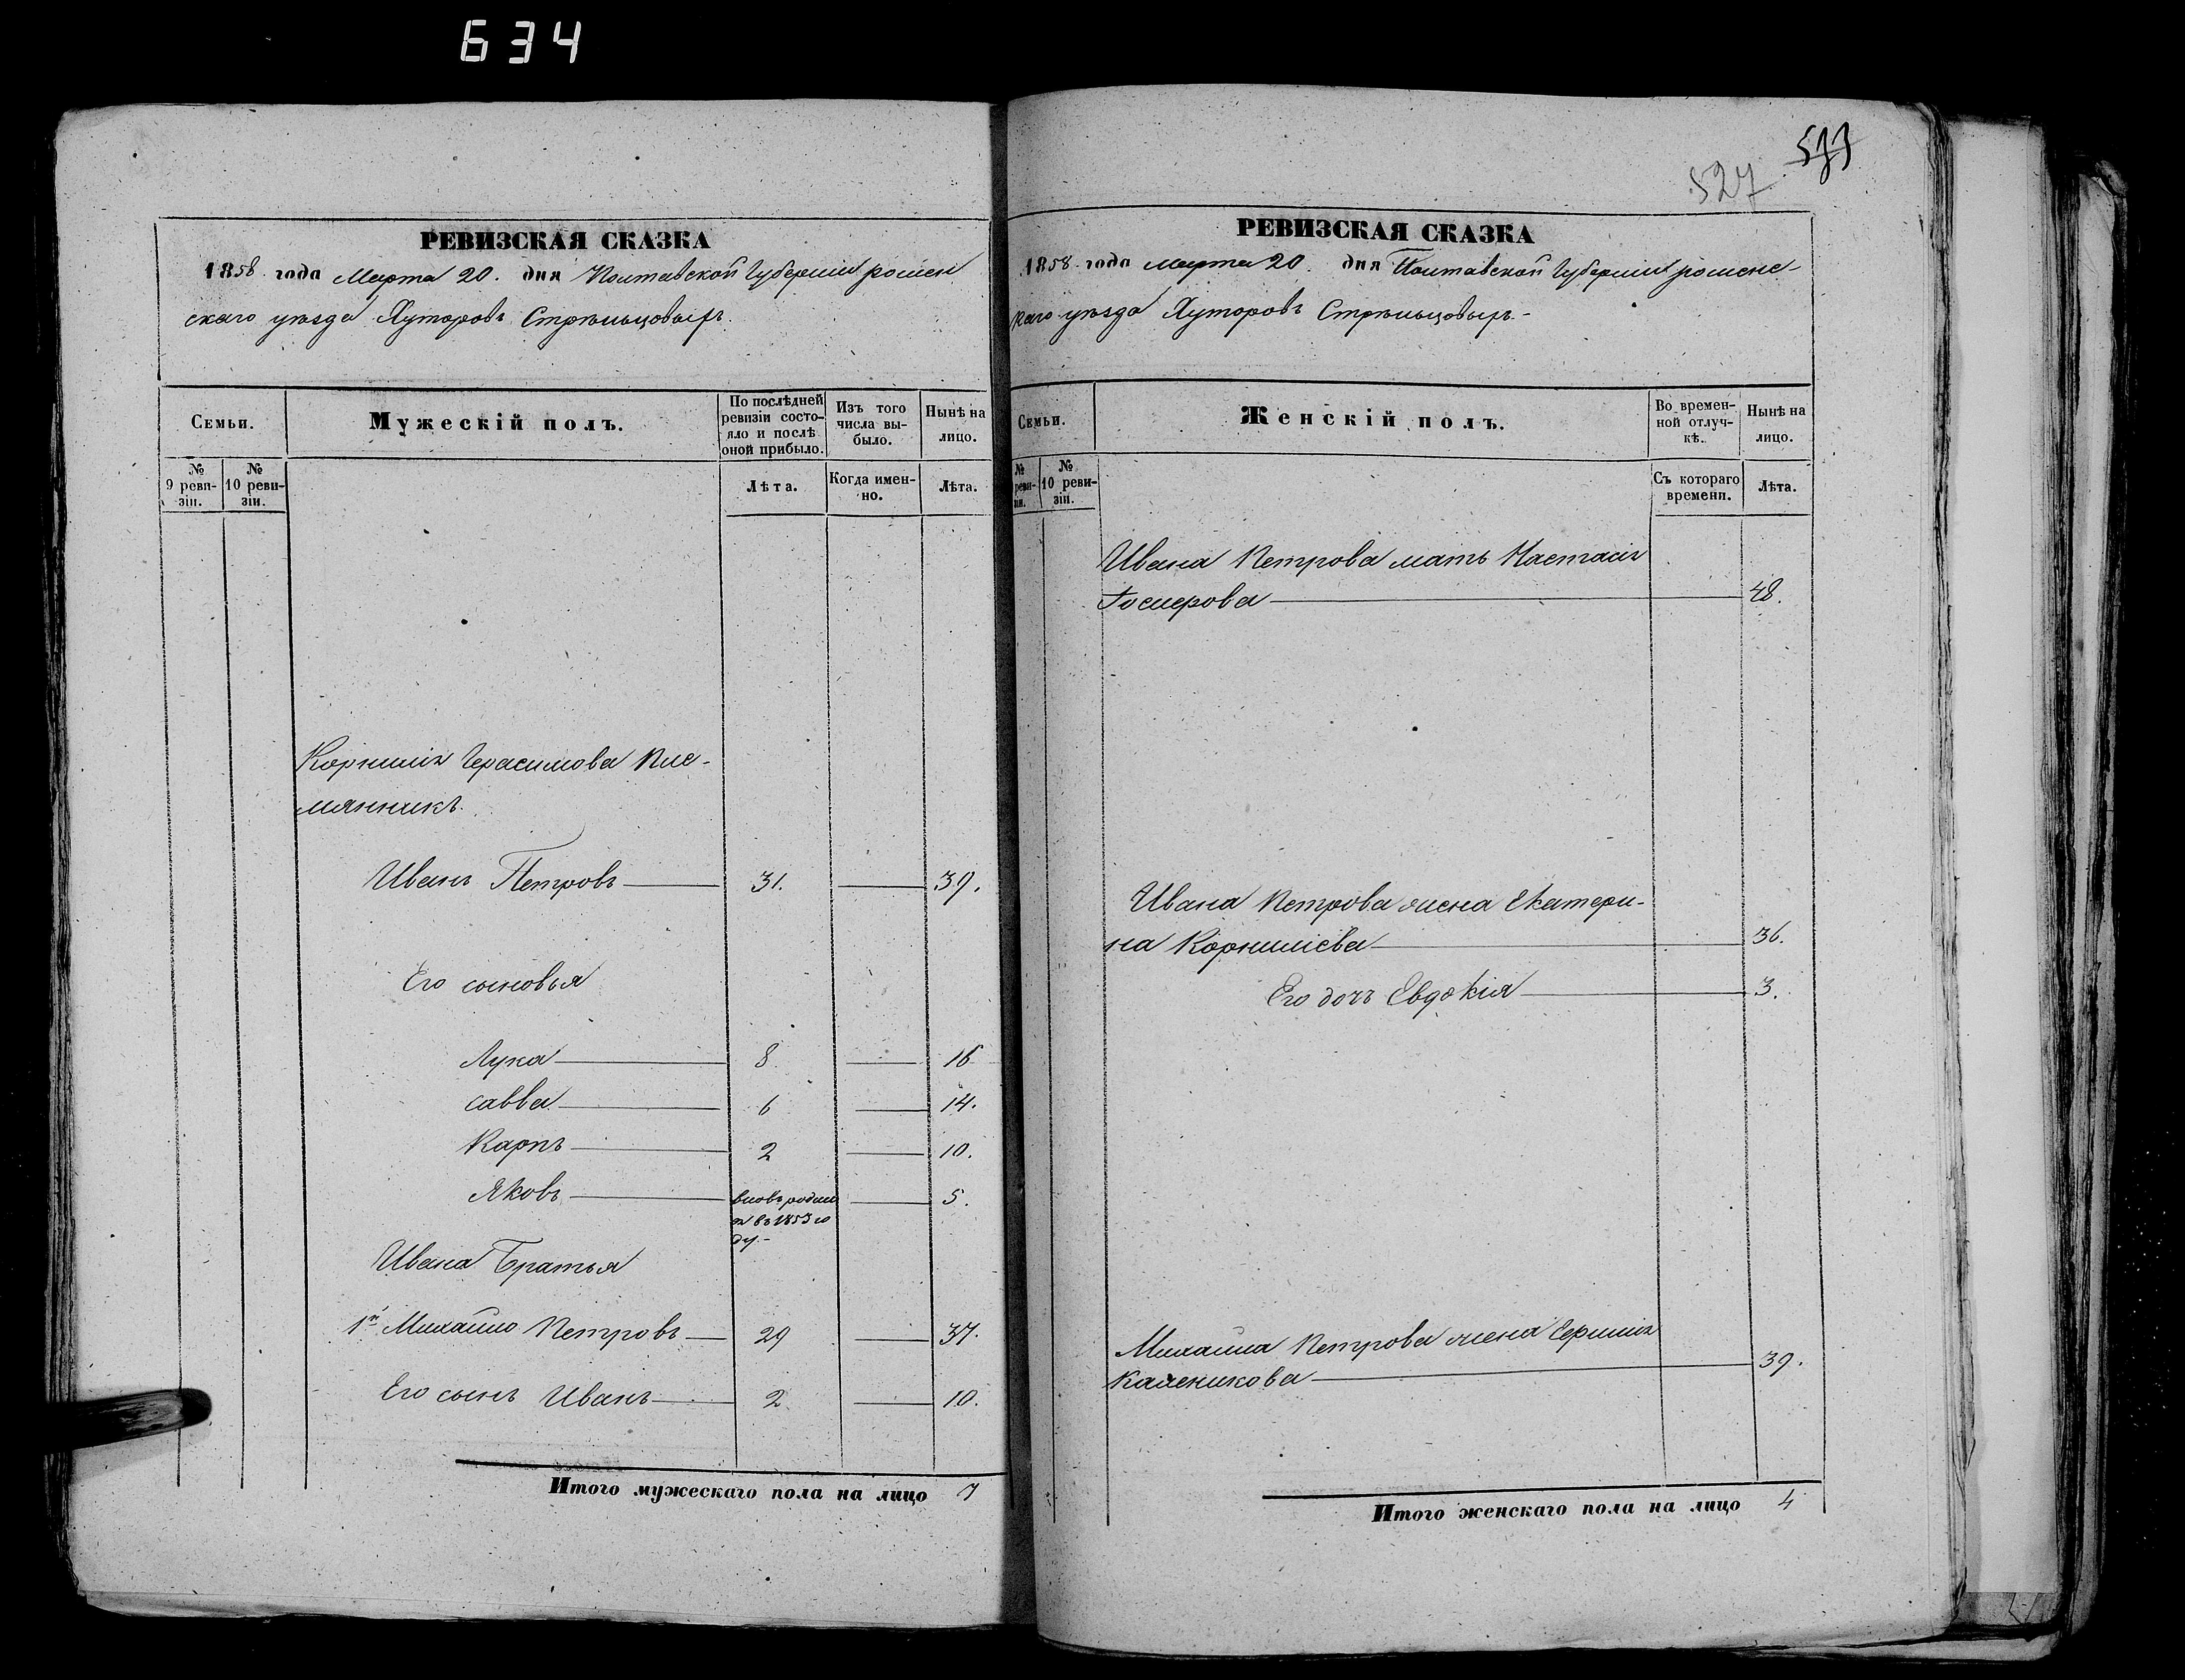 634
527
533
РЕВИЗСКАЯ СКАЗКА
1858 года Марта 20. дня Полтавской Губерніи ромен
скаго уѣзда Хуторовъ Стрѣльцовыхъ.
Семьи.
Мужескій полъ.
По послѣдней
ревизіи состо-
яло и послѣ
оной прибыло.
Изъ того
числа вы-
было.
Нынѣ на
лицо.
№
9 реви-
зіи.
№
10 реви-
зіи.
Лѣта.
Когда имен-
но.
Лѣта.
Корнилія Герасимова Пле-
мянникъ
Иванъ Петровъ 31. 39.
Его сыновья
Лука 8 16
савва 6 14.
Карпъ 2 10.
Яковъ вновь родил 5.
ся въ 1853 го
ду.-
Ивана Братья
1й Михайло Петровъ 29 37.
Его сынъ Иванъ 2 10.
Итого мужескаго пола на лицо 7
РЕВИЗСКАЯ СКАЗКА
1858 года Марта 20. дня Полтавской Губерніи роменс-
каго уѣзда Хуторовъ Стрѣльцовыхъ.-
Семьи.
Женскій полъ.
Во времен-
ной отлуч-
кѣ.
Нынѣ на
лицо.
№
реви-
зіи.
№
10 реви-
зіи.
Съ котораго
времени.
Лѣта.
Ивана Петрова мать Настасія
48.
Ивана Петрова жена Екатери-
на Корниліева 36.
Его дочь Евдокія 3.
Михаила Петрова жена
Каленикова 39.
Итого женскаго пола на лицо 4